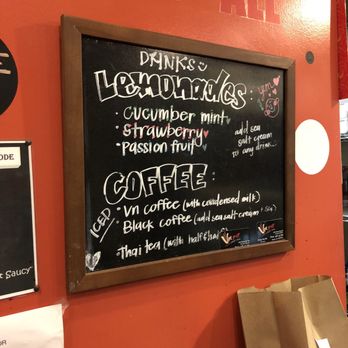 ALL
DRINKS
Lemonades:
· cucumber mint
· Strawberry
· Passion fruit
add sea
salt cream
to any drink...
COFFEE:
ICED
· Vn coffee (with condensed milk)
· Black coffee (add sea salt cream + 50¢)
· Thai tea (with half & half)
ODE
t Saucy"
OR